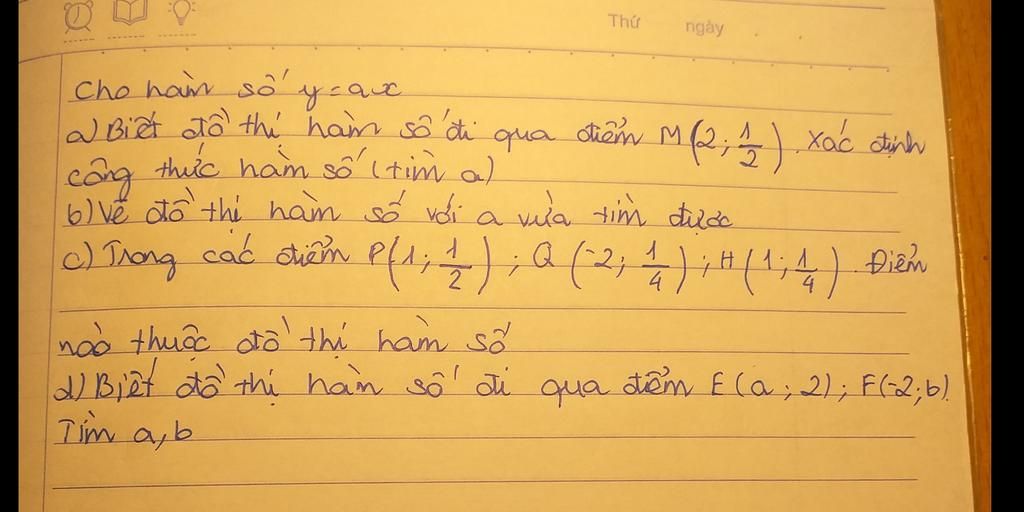 Thứ ngày
Cho hàm số y=ax
a) Biết đồ thị hàm số đi qua điểm M(2; 1/2). Xác định
công thức hàm số (tìm a)
b) Vẽ đồ thị hàm số với a vừa tìm được
c) Trong các điểm P(1; 1/2); Q(-2; 1/4); H(1; 1/4). Điểm
nào thuộc đồ thị hàm số
d) Biết đồ thị hàm số đi qua điểm E(a; 2); F(-2; b).
Tìm a, b